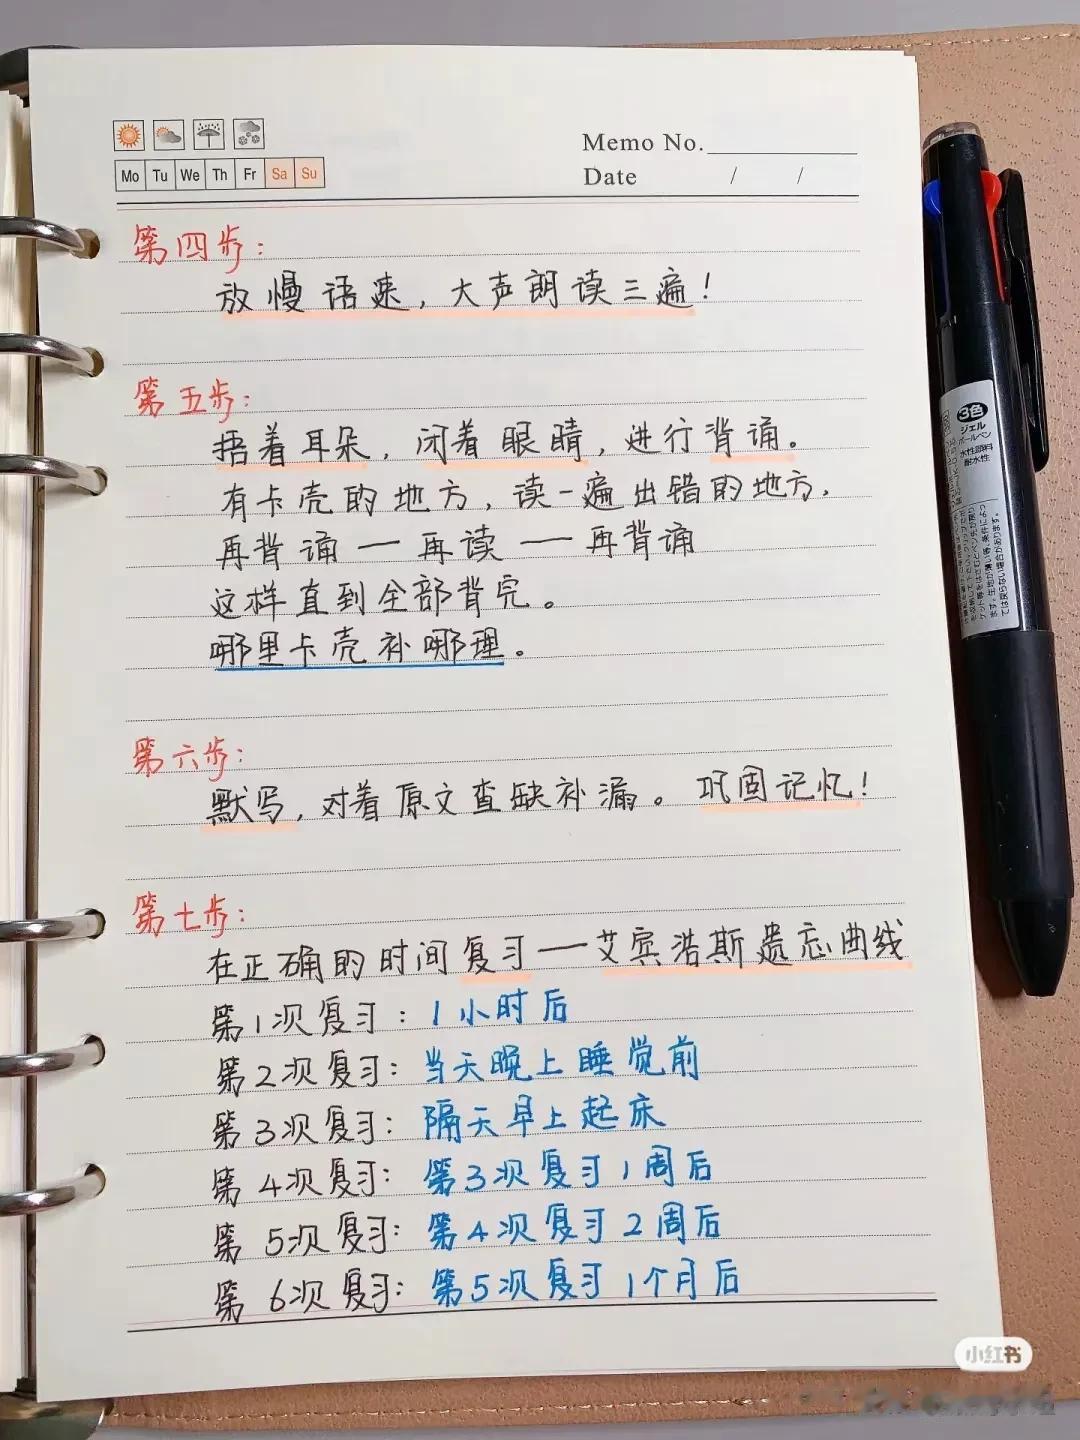 Mo Tu We Th Fr Sa Su
Memo No.
Date / /
第四步:
放慢语速，大声朗读三遍！
第五步:
捂着耳朵，闭着眼睛，进行背诵。
有卡壳的地方，读一遍出错的地方，
再背诵一再读一再背诵
这样直到全部背完。
哪里卡壳补哪理。
第六步:
默写，对着原文查缺补漏。巩固记忆！
第七步:
在正确的时间复习——艾宾浩斯遗忘曲线
第1次复习：1小时后
第2次复习：当天晚上睡觉前
第3次复习：隔天早上起床
第4次复习：第3次复习1周后
第5次复习：第4次复习2周后
第6次复习：第5次复习1个月后
3色
ジェル
ボールペン
水性顔料
耐水性
小红书